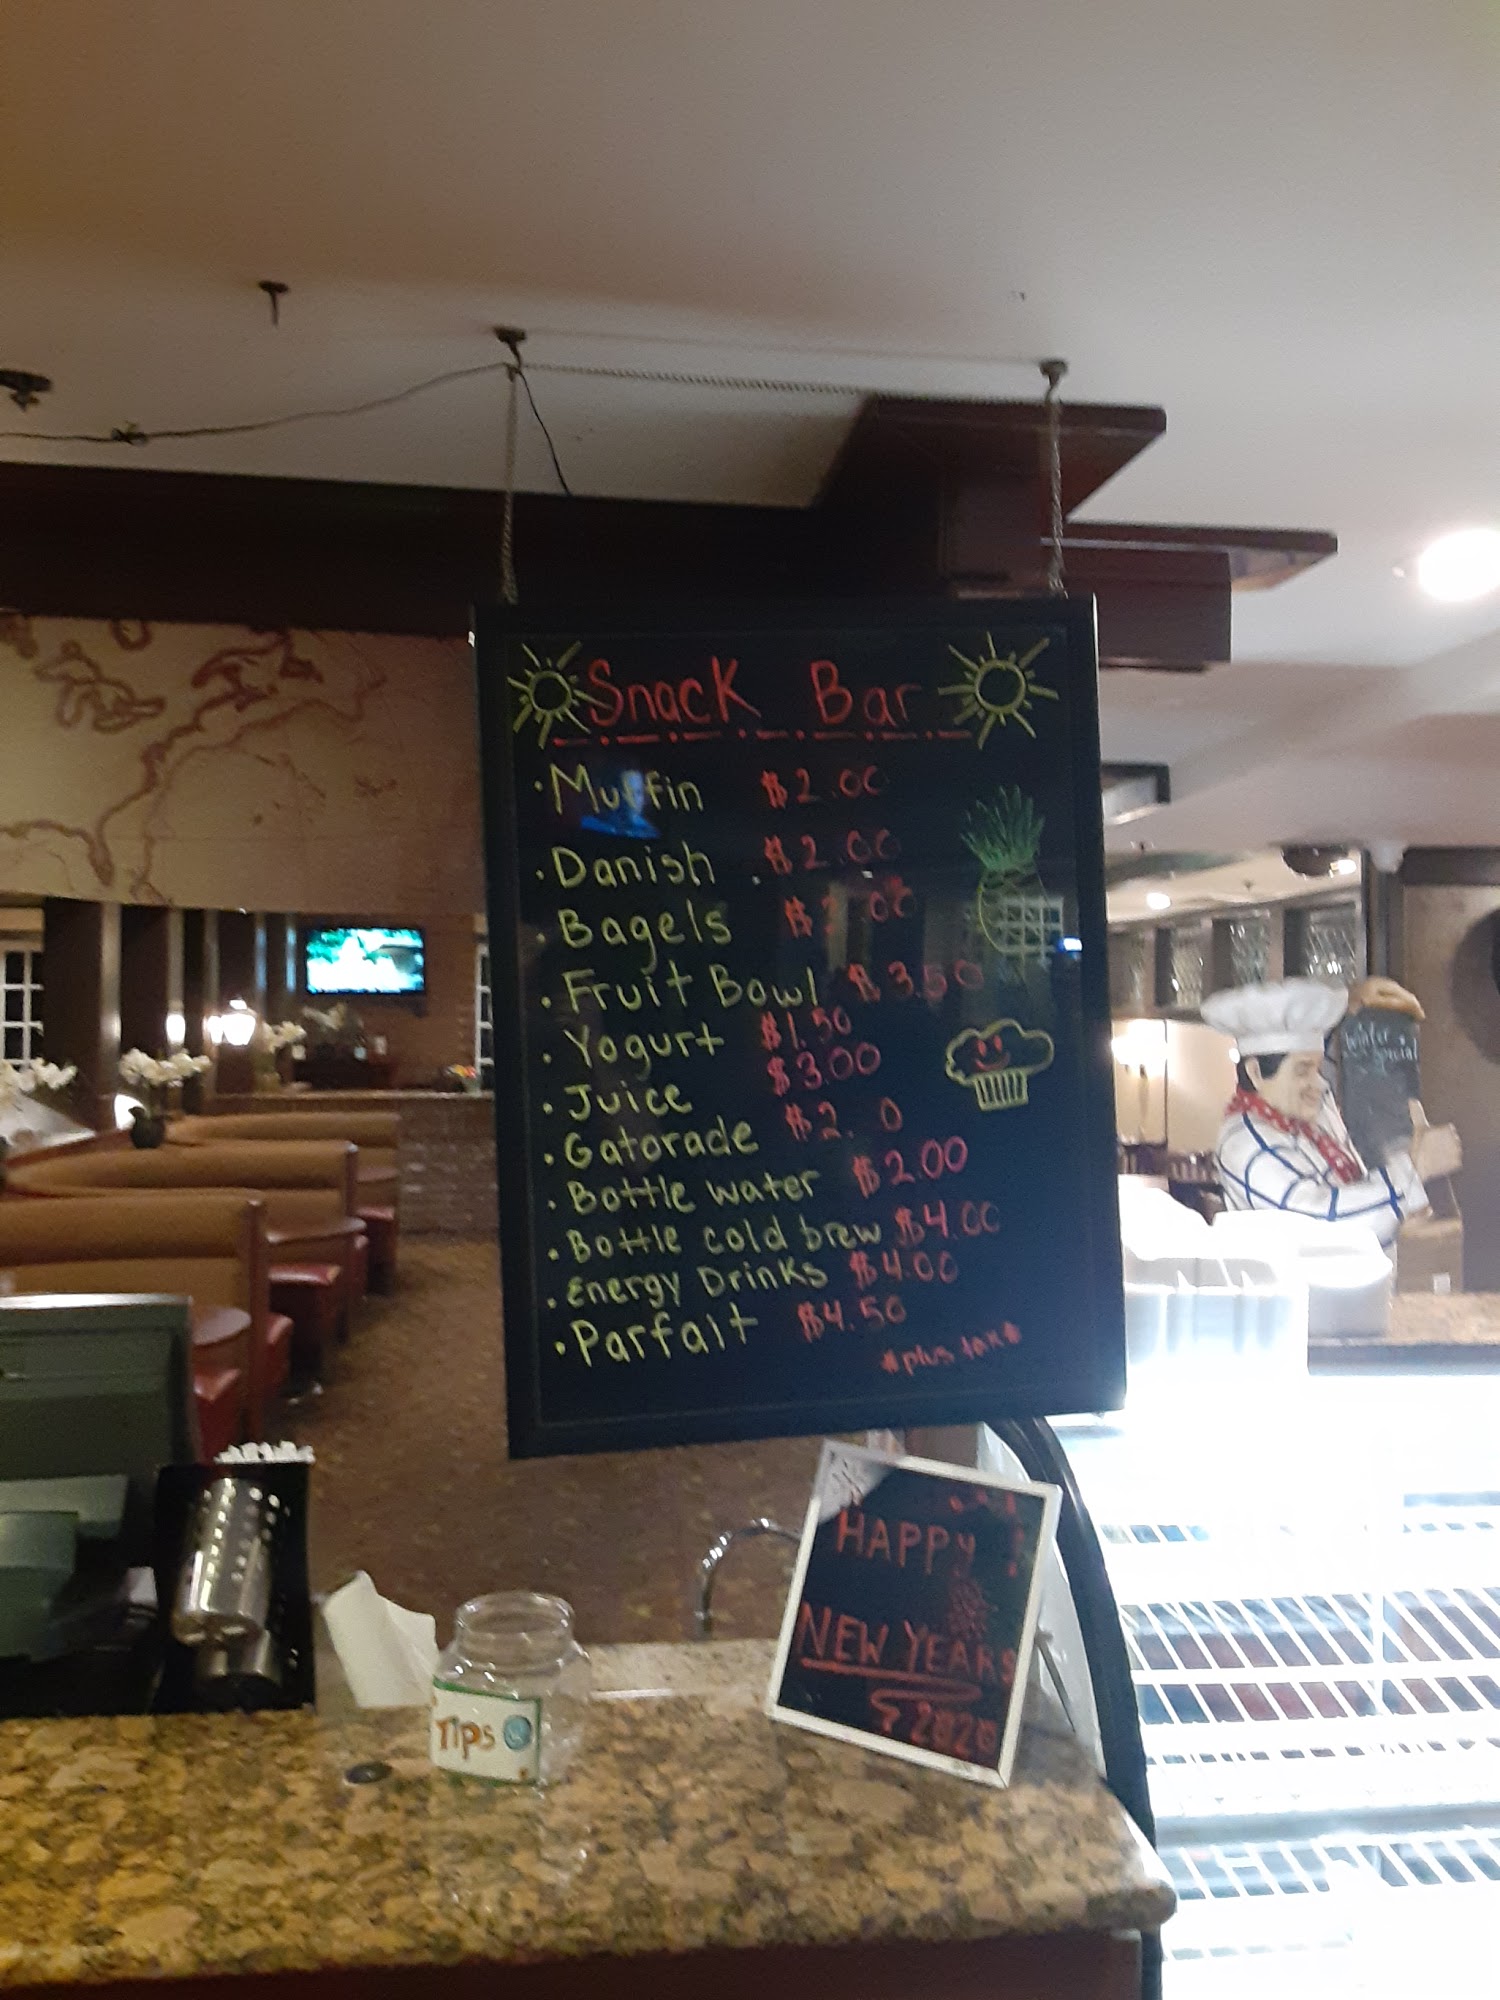 Snack Bar
• Muffin $2.00
• Danish $2.00
• Bagels
• Fruit Bowl $3.50
• Yogurt $1.50
• Juice $3.00
• Gatorade
• Bottle water $2.00
• Bottle cold brew $4.00
• Energy Drinks $4.00
• Parfait $4.50
*plus tax*
Winter
Special
HAPPY !
NEW YEARS
2020
Tips